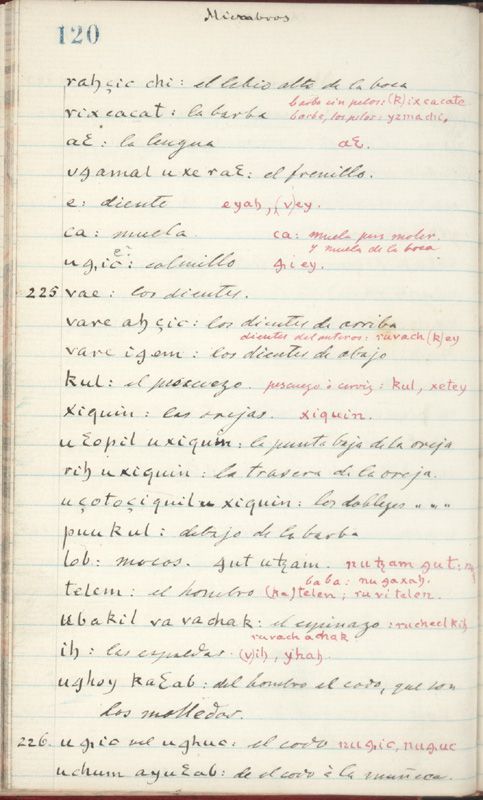 Miembros
120
rahçic chi: el labio alto de la boca
barba sin pelos: (k)ixcacate
rixcacat: la barba barba, los pelos: yzmachi,
aɛ: la lengua aɛ.
vgamal uxe raɛ: el frenillo.
e: diente eyah, (v)ey.
ca: muela. ca: muela para moler
y muela de la boca
colmillo giey.
225 vae: los dientes.
vare ahçic: los dientes de arriba
dientes delanteros: ruvach (k)ey
vare igem: los dientes de abajo
kul: el pescuezo. pescuezo ò cerviz: kul, xetey
xiquin: las orejas. xiquin.
uɛopil uxiquin: la punta baja de la oreja
rih uxiquin: la travera de la oreja.
uçotoçiquil u xiquin: los dobleges " " "
puukul: debajo de la barba
lob: mocos. gut utzam. nutzam gut:
baba: nugaxah.
telem: el hombro (ka)telen; ruvitelen.
ubakil va vachak: el espinazo: rucheel kih
ruvach achak
ih: las espaldas. (v)ih, yhah.
ughoy kaɛab: del hombro el codo, que son
los molledos.
226. ugic vel ughuc: el codo nugic, nuguc
uchum ayuɛab: de el codo à la muñeca.